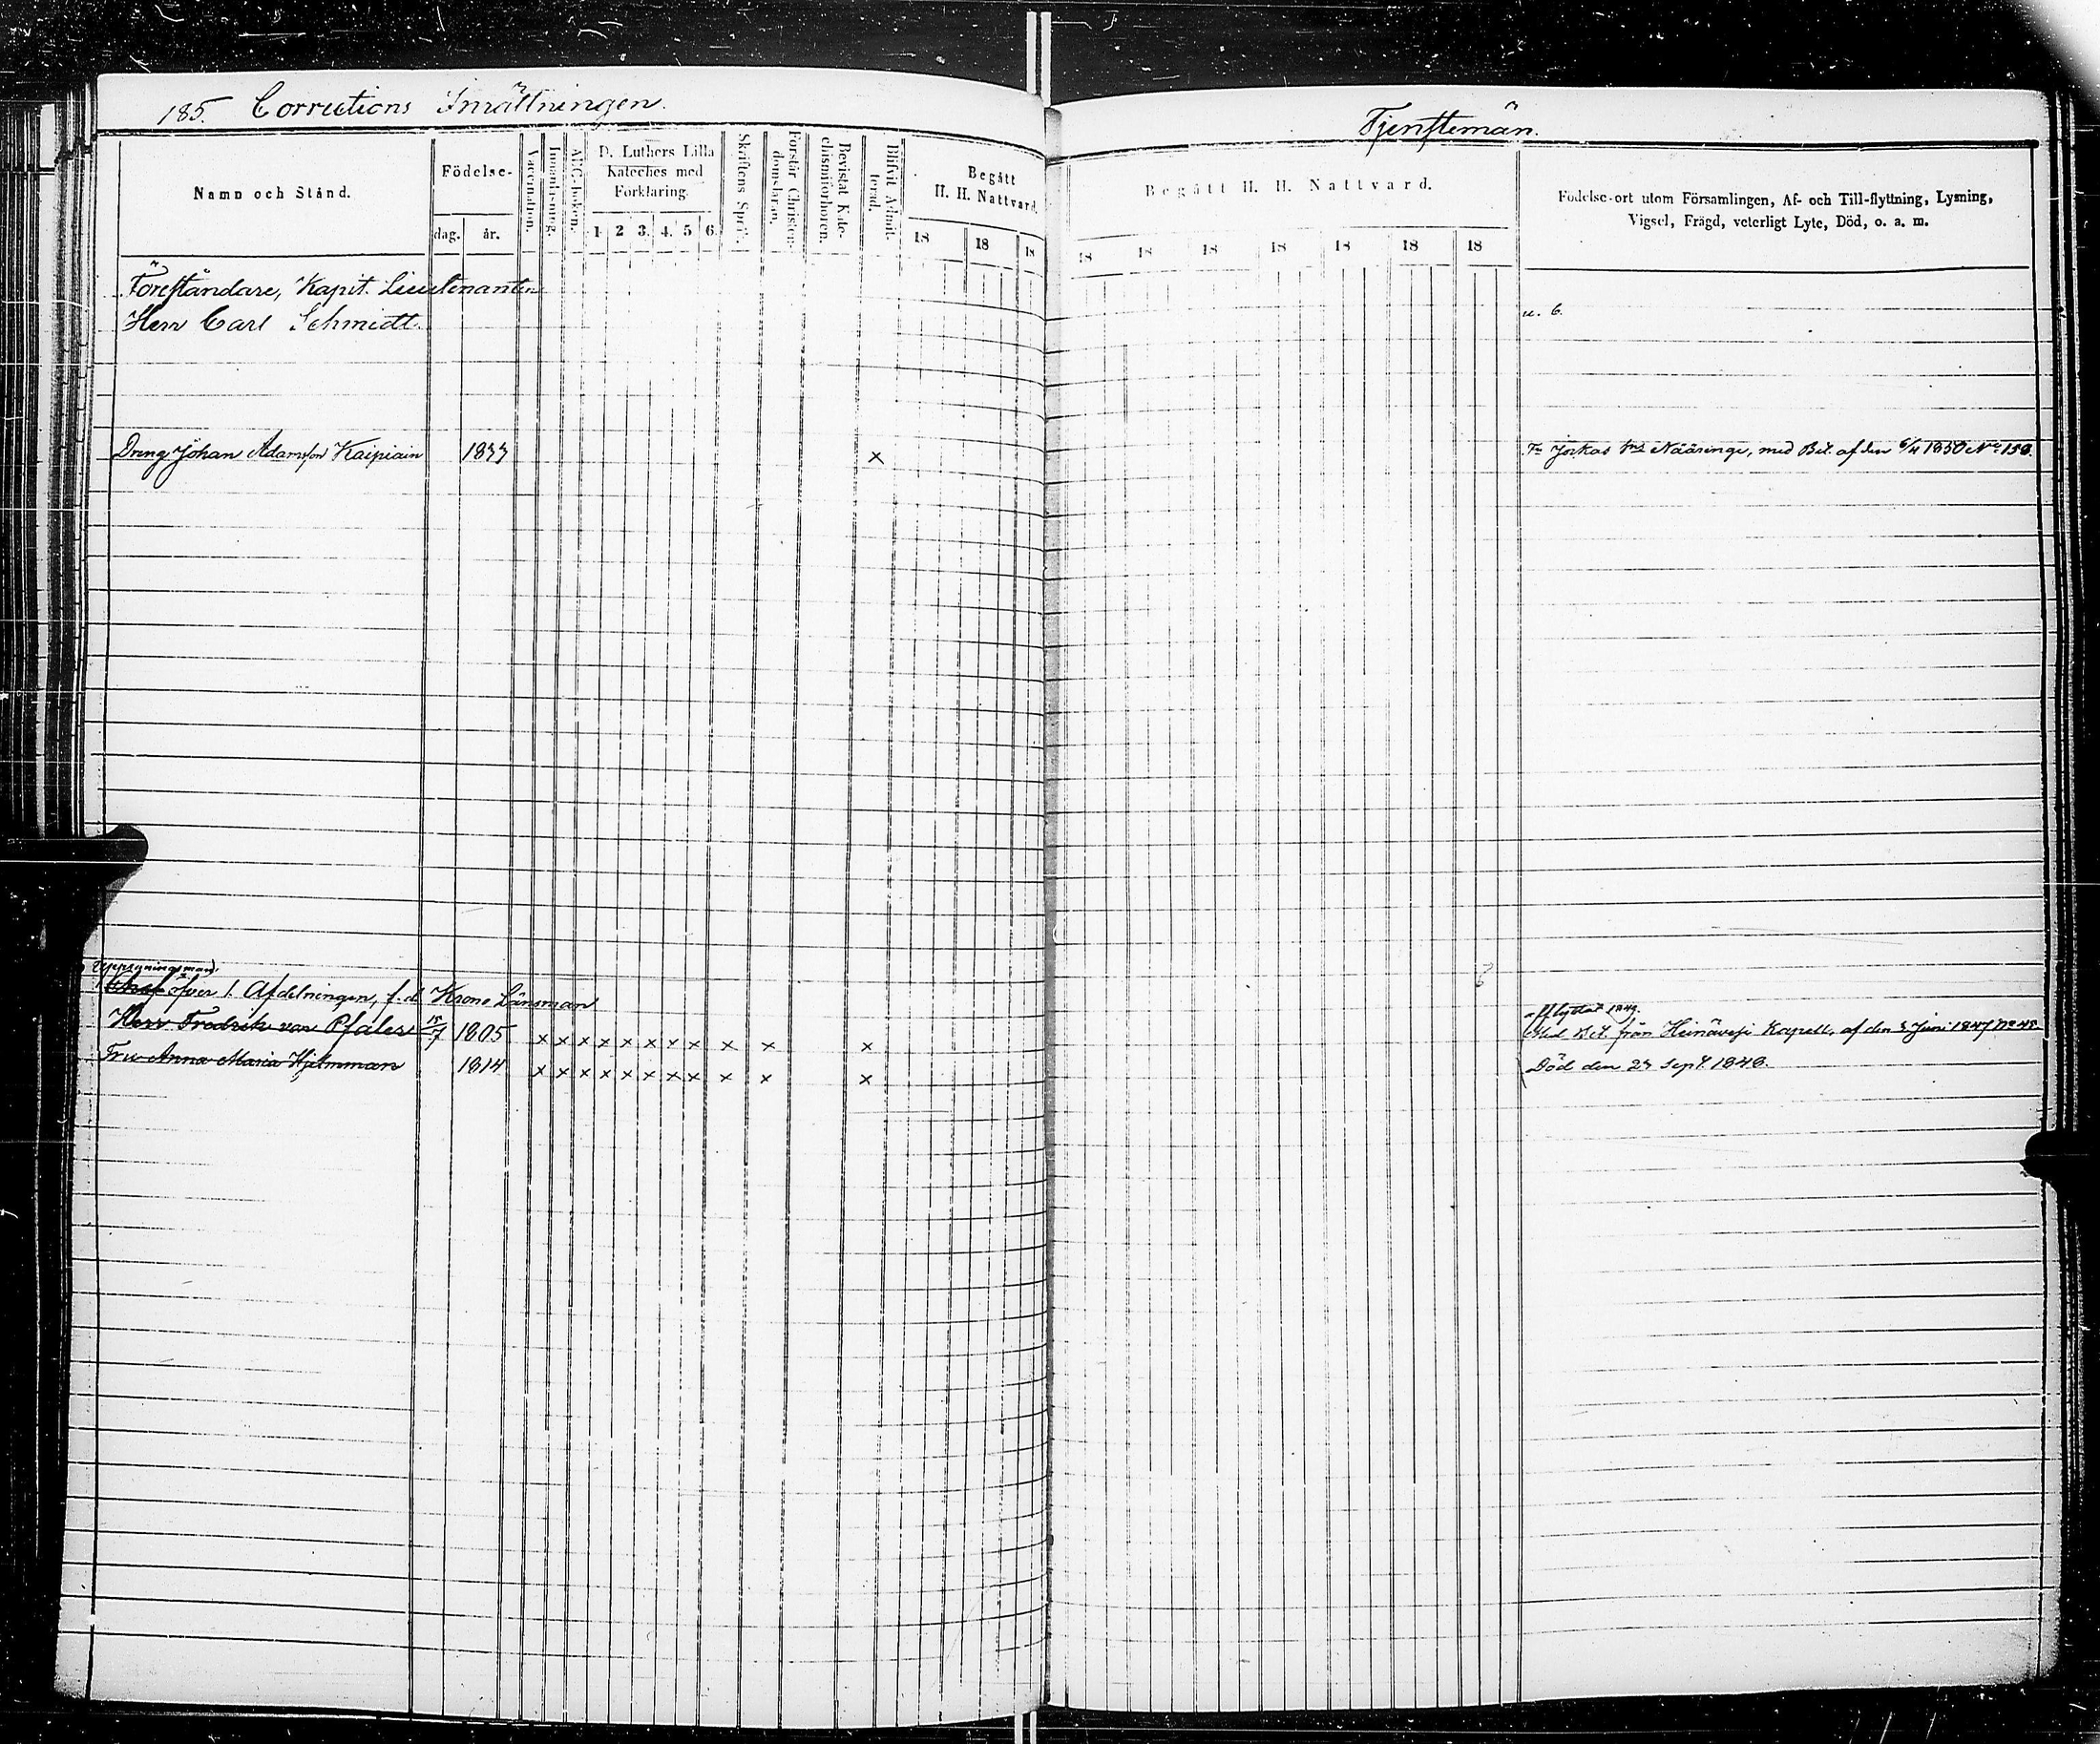 185. Corrections Inrättningen.
Namn och Stånd.
Födelse-
dag. år.
Vaccination.
Innanläsning.
ABC-boken.
D. Luthers Lilla
Kateches med
Förklaring.
1 2 3. 4. 5 6.
Skriftens Språk.
Förstår Christen-
domsläran.
Bevistat Kate-
chismiförhören.
Blifvit Admit-
terad.
Begått
H. H. Nattvard.
18 18 18
Föreståndare, Kapit. Lieutenanten
Herr Carl Schmidt.
Dreng Johan Adamsson Kaipiain 1833 ×
Uppsyningsman
öfver 1. Afdelningen, f. d. Krono Länsman
Herr Fredrik von Pfaler 15/7 1805 × × × × × × × × × × ×
Fru Anna Maria Hjelmman 1814 × × × × × × × × × × ×
Tjenstemän.
Begått H. H. Nattvard.
18 18 18 18 18 18 18
Födelse-ort utom Församlingen, Af- och Till-flyttning, Lysning,
Vigsel, Frägd, veterligt Lyte, Död, o. a. m.
u. b.
Jorkas Nääringi, med Bet. af den 6/4 1850 No 150.
aflyttat 1849.
Med Bet. från Heinävesi Kapell, af den 5 Juni 1847 No 45
Död den 23 Sept. 1848.